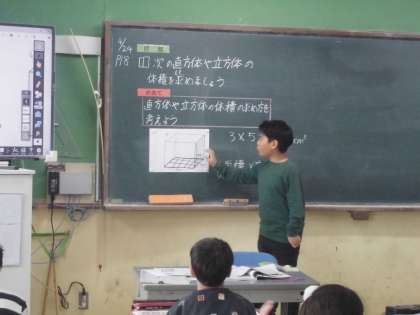 4/24
P18
1 次の直方体や立方体の
体積を求めましょう
直方体や立方体の体積の求め方を
考えよう
3×5
cm³